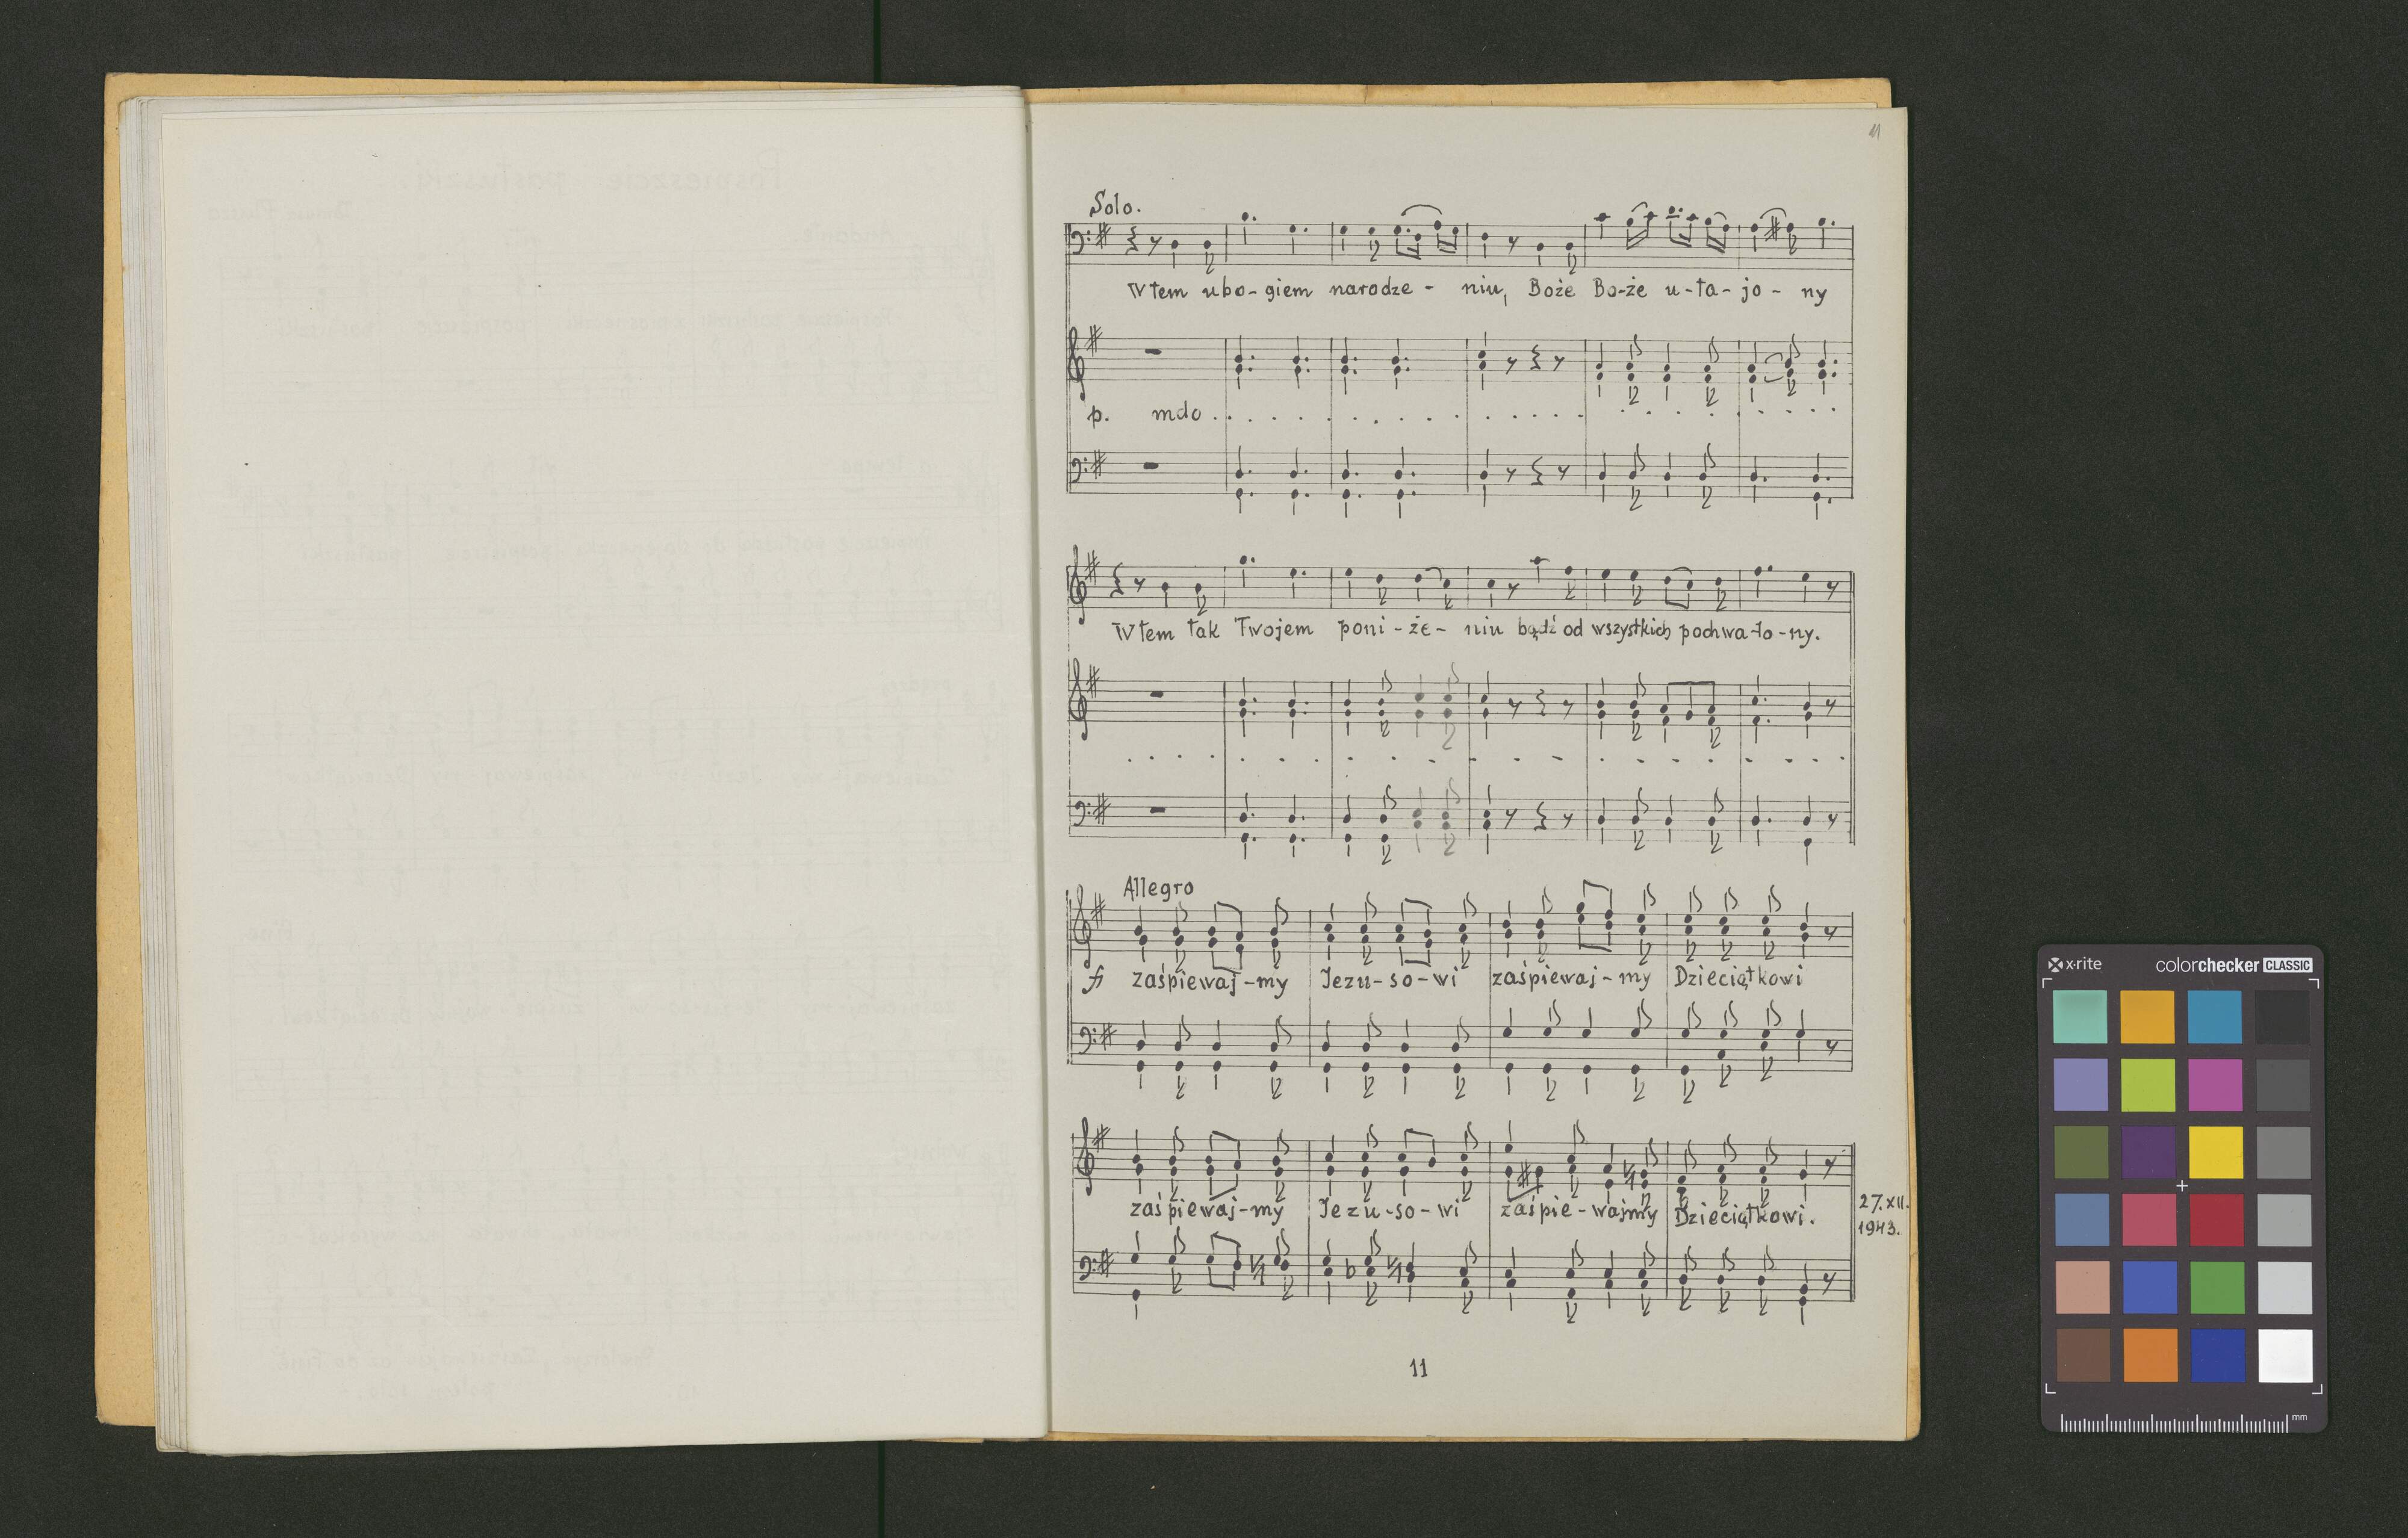 11
Solo.
W tem ubo-giem narodze - niu, Boże Bo-że u-ta-jo-ny
p. mdo . . . . . . . . . . . . . . . . . . . . . . . . . .
W tem tak Twojem poni-że-niu bądź od wszystkich pochwa-ło-ny.
Allegro
f zaśpiewaj-my Jezu-so-wi zaśpiewaj-my Dzieciątkowi
zaśpiewaj-my Jezu-so-wi zaśpie-wajmy Dzieciątkowi.
27.XII.
1943.
11
x-rite colorchecker CLASSIC
mm